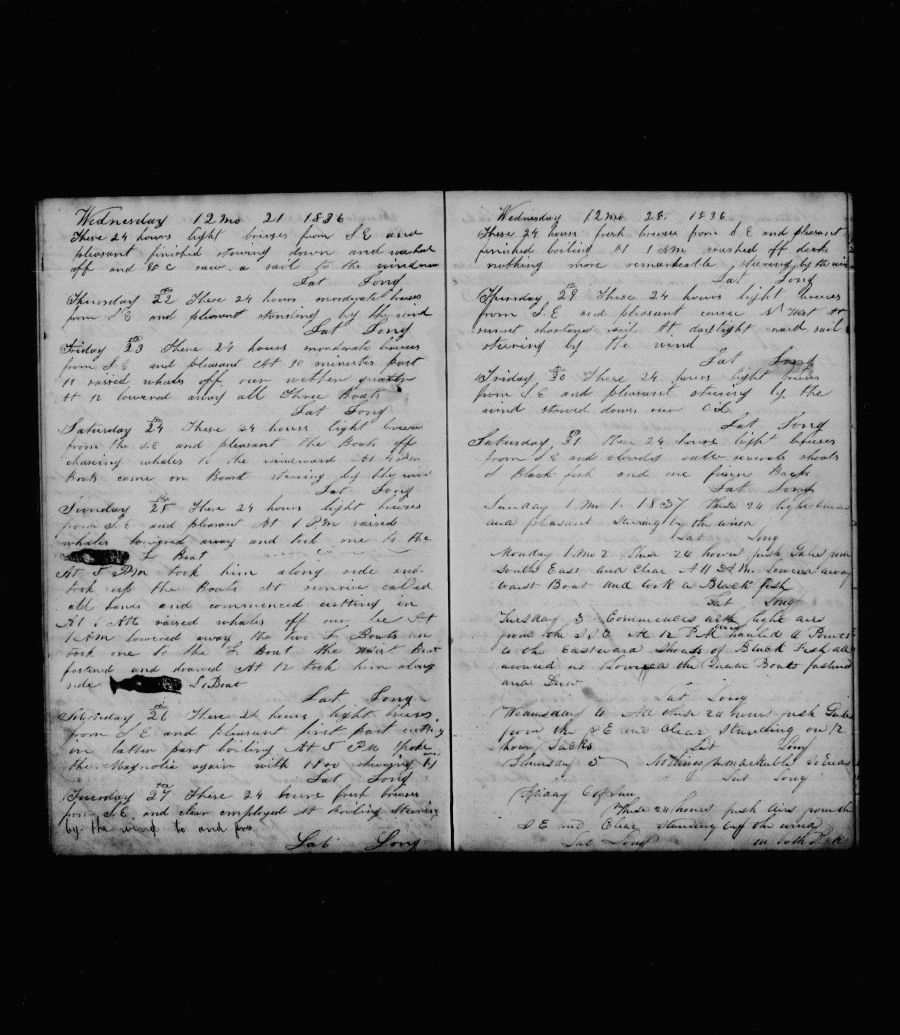 Wednesday 12 mo 21 1836
These 24 hours light breezes from S.E and
pleasant finished stowing down and washed
off and &c saw a sail to the windward
Lat Long
Thursday 22 These 24 hours moderate breezes
from S E and pleasant standing by the wind
Lat Long
Friday 23 These 24 hours moderate breezes
from S. E and pleasant At 30 minutes past
11 raised whales off our weather quarter
At 12 lowered away all Three Boats
Lat Long
Saturday 24 These 24 hours light breeze
from the S.E and pleasant the Boats off
chaseing whales to the windward At 4 PM
Boats came on Board steering by the wind
Lat Long
Sunday 25 These 24 hours light breezes
from S. E and pleasant At 1 PM raised
whales lowered away and took one to the
L Boat
At 5 PM took him along side and
took up the Boats At sunrise called
all hands and commenced cutting in
At AM raised whales off our lee At
AM lowered away the two L Boats
took one to the L Boat the Waist Boat
fastened and drawed At 12 took him along
side L Boat
Lat Long
26 These 24 hours light breezes
from S. E and pleasant first part cutting
in latter part boiling At 5 PM spoke
the Magnolia again with 1800
Lat Long
Tuesday 27 These 24 hours fresh breezes
from S.E. and clear employed At Boiling Steering
by the wind to and fro
Lat Long
Wednesday 12 mo 28. 1836
These 24 hours fresh breeze from S E and pleasant
finished boiling At 1 AM washed off decks
nothing more remarkable steering by the wind
Lat Long
Thursday 29 These 24 hours light breezes
from S. E and pleasant course N West At
sunset shortened sail At daylight made sail
steering by the wind
Lat Long
Friday 30 These 24 hours light breezes
from S. E and pleasant steering by the
wind stowed down our Oil
Lat Long
Saturday 31 these 24 hours light breezes
from S E and cloudy severals shoals
of Black fish and one finn Back
Lat Long
Sunday 1 Mo 1. 1837 these 24 light breezes
and pleasant Stearing by the wind
Lat Long
Monday 1 Mo 2 These 24 hours fresh Gales
South East and Clear At 11 AM Lowered away
waist Boat and took a Black fish
Lat Long
Tuesday 3 Commences with light airs
from the S S E At 12 PM
to the Eastward Shoals of Black Fish all
around us Lowered the Boats fastened
and Drew
Lat Long
Wednesday 4 All these 24 hours fresh Gales
from the S E and Clear Standing on 12
hour Tacks Lat Long
Thursday 5 Nothing Remarkable
Lat Long
Friday 6
These 24 hours fresh Airs from the
S E and Clear standing by the wind
Lat Long on both